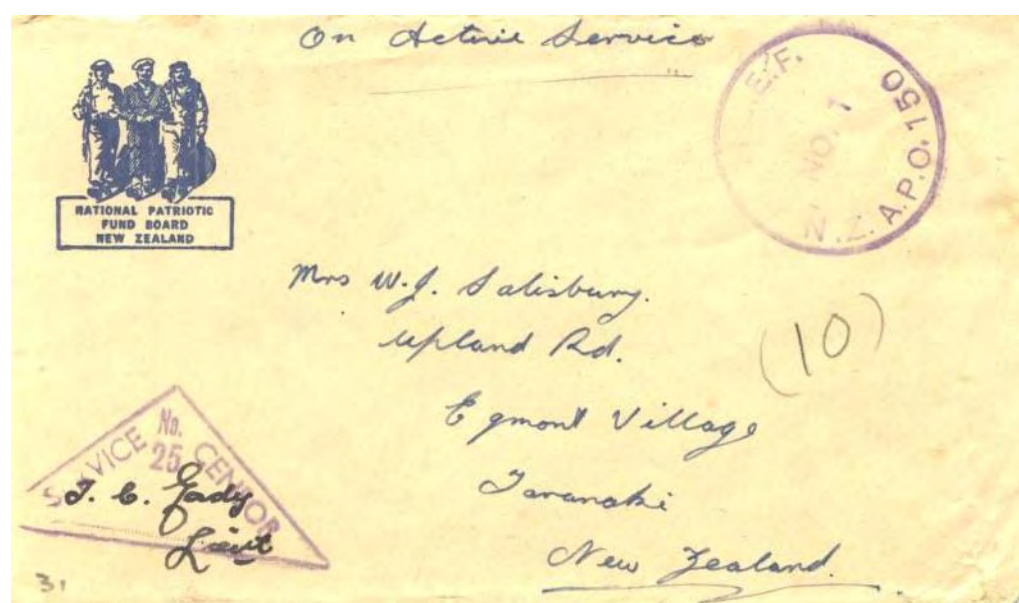 On Active Service
E.F.
NO. 1
N.Z. A.P.O. 150
NATIONAL PATRIOTIC
FUND BOARD
NEW ZEALAND
Mrs W.J. Salisbury.
Upland Rd.
(10)
Egmont Village
Taranaki
New Zealand.
SERVICE CENSOR
No.
25
Lieut
31